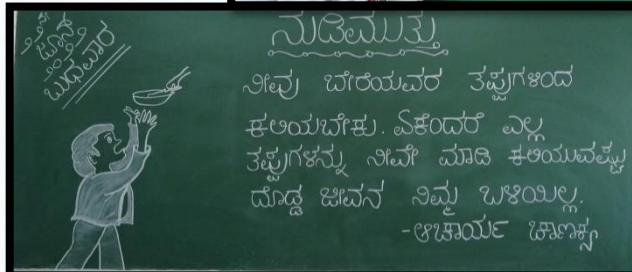 ಜೂನ್
ಬುಧವಾರ
ನುಡಿಮುತ್ತು
ನೀವು ಬೇರೆಯವರ ತಪ್ಪುಗಳಿಂದ
ಕಲಿಯಬೇಕು. ಏಕೆಂದರೆ ಎಲ್ಲ
ತಪ್ಪುಗಳನ್ನು ನೀವೇ ಮಾಡಿ ಕಲಿಯುವಷ್ಟು
ದೊಡ್ಡ ಜೀವನ ನಿಮ್ಮ ಬಳಿಯಿಲ್ಲ.
-ಆಚಾರ್ಯ ಚಾಣಕ್ಯ